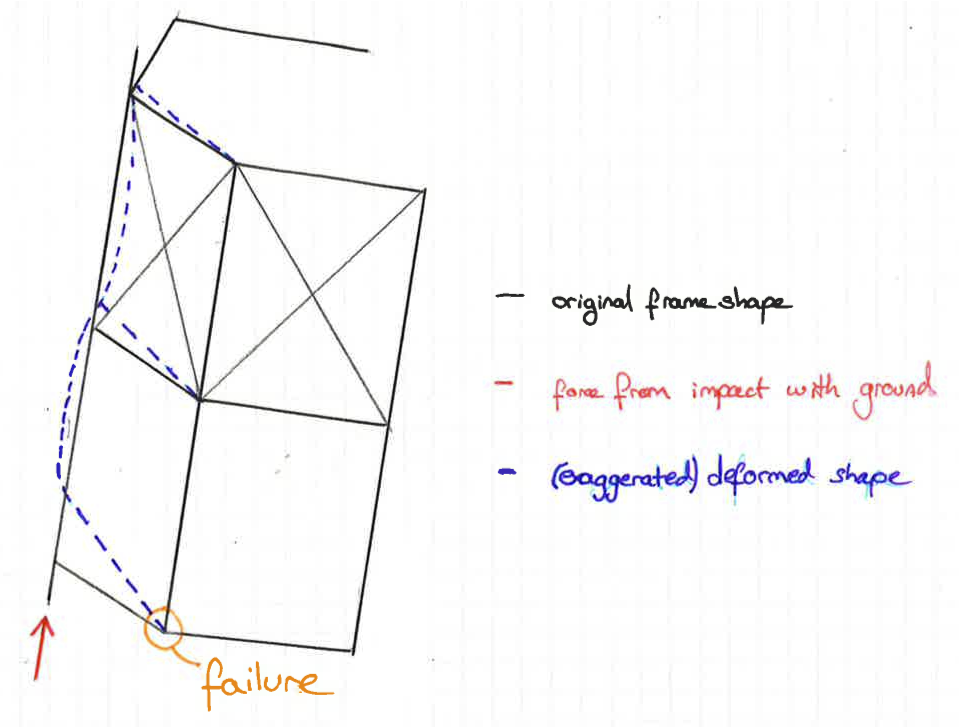 original frame shape
force from impact with ground
(exaggerated) deformed shape
failure